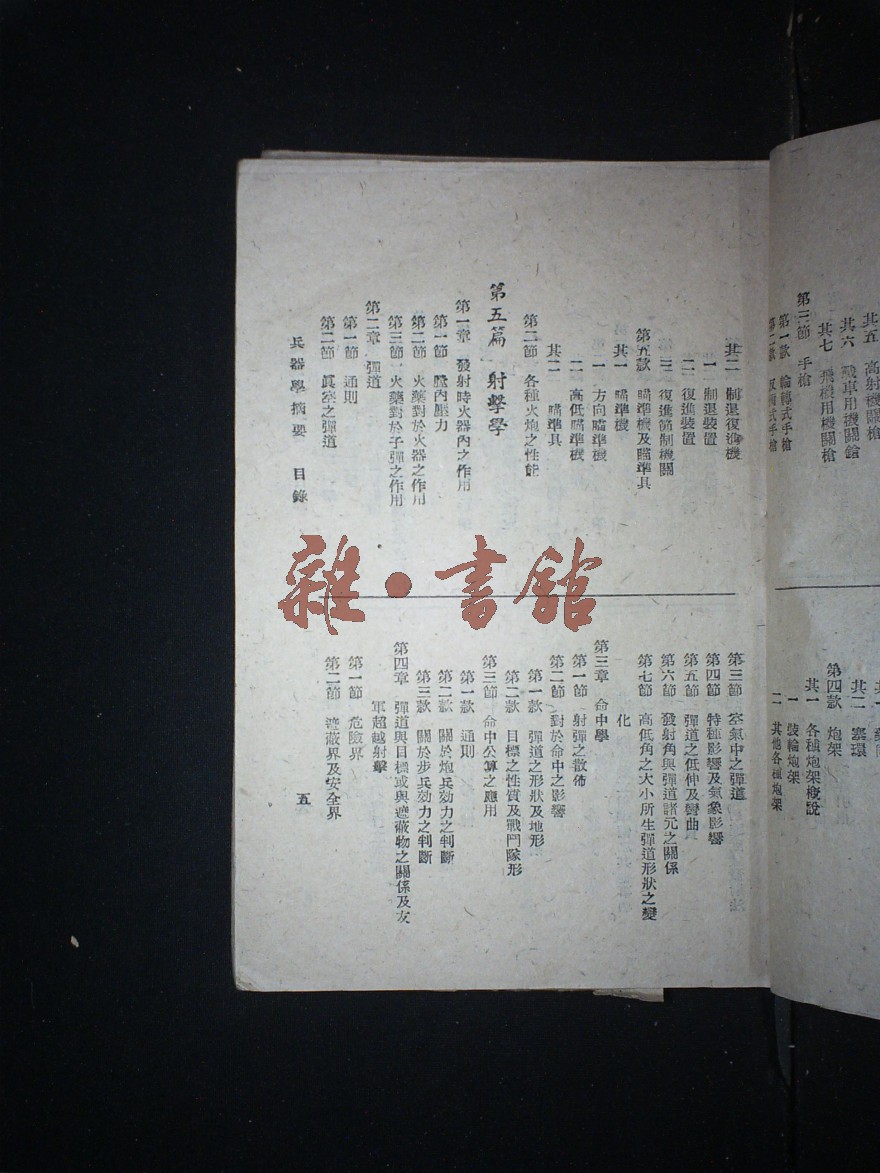 其五 高射機關槍
其六 戰車用機關槍
其七 飛機用機關槍
第三節 手槍
第一款 輪轉式手槍
第二款 手槍
其二 塞環
第四款 炮架
其一 各種炮架槪說
一 裝輪炮架
二 其他各種炮架
其二 制退復進機
一 制退裝置
二 復進裝置
三 復進節制機關
第五款 瞄準機及瞄準具
其一 瞄準機
一 方向瞄準機
二 高低瞄準機
其二 瞄準具
第二節 各種火炮之性能
第五篇 射擊學
第一章 發射時火器內之作用
第一節 膛內壓力
第二節 火藥對於火器之作用
第三節 火藥對於子彈之作用
第二章 彈道
第一節 通則
第二節 眞空之彈道
第三節 空氣中之彈道
第四節 特種影響及氣象影響
第五節 彈道之低伸及彎曲
第六節 發射角與彈道諸元之關係
第七節 高低角之大小所生彈道形狀之變
化
第三章 命中學
第一節 射彈之散佈
第二節 對於命中之影響
第一款 彈道之形狀及地形
第二款 目標之性質及戰鬥隊形
第三節 命中公算之應用
第一款 通則
第二款 關於炮兵効力之判斷
第三款 關於步兵効力之判斷
第四章 彈道與目標或與遮蔽物之關係及友
軍超越射擊
第一節 危險界
第二節 遮蔽界及安全界
兵器學摘要 目錄
五
雜·書館